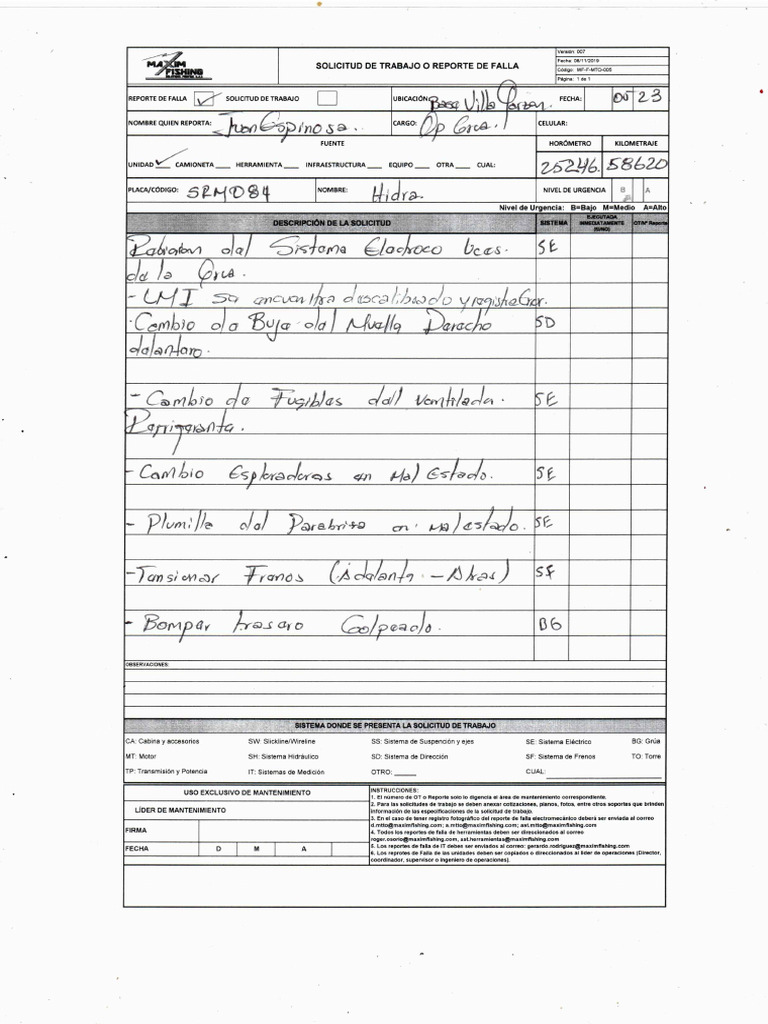 MAXIM
FISHING
SOLICITUD DE TRABAJO O REPORTE DE FALLA
Versión: 007
Fecha: 06/11/2019
Código: MF-F-MTO-005
Página: 1 de 1
REPORTE DE FALLA SOLICITUD DE TRABAJO UBICACIÓN: Base Villa FECHA: 23
NOMBRE QUIEN REPORTA: Juan Espinosa. CARGO: Op Grua. CELULAR:
FUENTE HORÓMETRO KILOMETRAJE
UNIDAD CAMIONETA ___ HERRAMIENTA ___ INFRAESTRUCTURA ___ EQUIPO ___ OTRA ___ CUAL: 25246. 58620
PLACA/CÓDIGO: SRM084 NOMBRE: Hidra. NIVEL DE URGENCIA B A
Nivel de Urgencia: B=Bajo M=Medio A=Alto
DESCRIPCIÓN DE LA SOLICITUD SISTEMA EJECUTADA INMEDIATAMENTE (SI/NO) OT/Nº Reporte
del Sistema Electroco luces. SE
de la Grua.
- LMI se encuentra descalibrado y
- Cambio de Buje del Muelle Derecho SD
delantero.
- Cambio de Fugibles del ventilador. SE
Refrigerante.
- Cambio Esploradoras en Mal Estado. SE
- Plumilla del Parabrisa en mal estado. SE
- Tensionar Frenos (Adelante - Atras) SF
- Bomper trasero Golpeado. BG
OBSERVACIONES:
SISTEMA DONDE SE PRESENTA LA SOLICITUD DE TRABAJO
CA: Cabina y accesorios SW: Slickline/Wireline SS: Sistema de Suspención y ejes SE: Sistema Eléctrico BG: Grúa
MT: Motor SH: Sistema Hidráulico SD: Sistema de Dirección SF: Sistema de Frenos TO: Torre
TP: Transmisión y Potencia IT: Sistemas de Medición OTRO: _____ CUAL: _____
USO EXCLUSIVO DE MANTENIMIENTO
LÍDER DE MANTENIMIENTO
FIRMA
FECHA D M A
INSTRUCCIONES:
1. El número de OT o Reporte solo lo digencia el área de mantenimiento correspondiente.
2. Para las solicitudes de trabajo se deben anexar cotizaciones, planos, fotos, entre otros soportes que brinden
información de las especificaciones de la solicitud de trabajo.
3. En el caso de tener registro fotográfico del reporte de falla electromecánico deberá ser enviada al correo
d.mtto@maximfishing.com; a.mtto@maximfishing.com; ast.mtto@maximfishing.com
4. Todos los reportes de falla de herramientas deben ser direccionados al correo
roger.osorio@maximfishing.com, ast.herramientas@maximfishing.com
5. Los reportes de falla de IT debes ser enviados al correo: gerardo.rodriguez@maximfishing.com
6. Los reprotes de Falla de las unidades deben ser copiados o direccionados al líder de operaciones (Director,
coordinador, supervisor o ingeniero de operaciones).